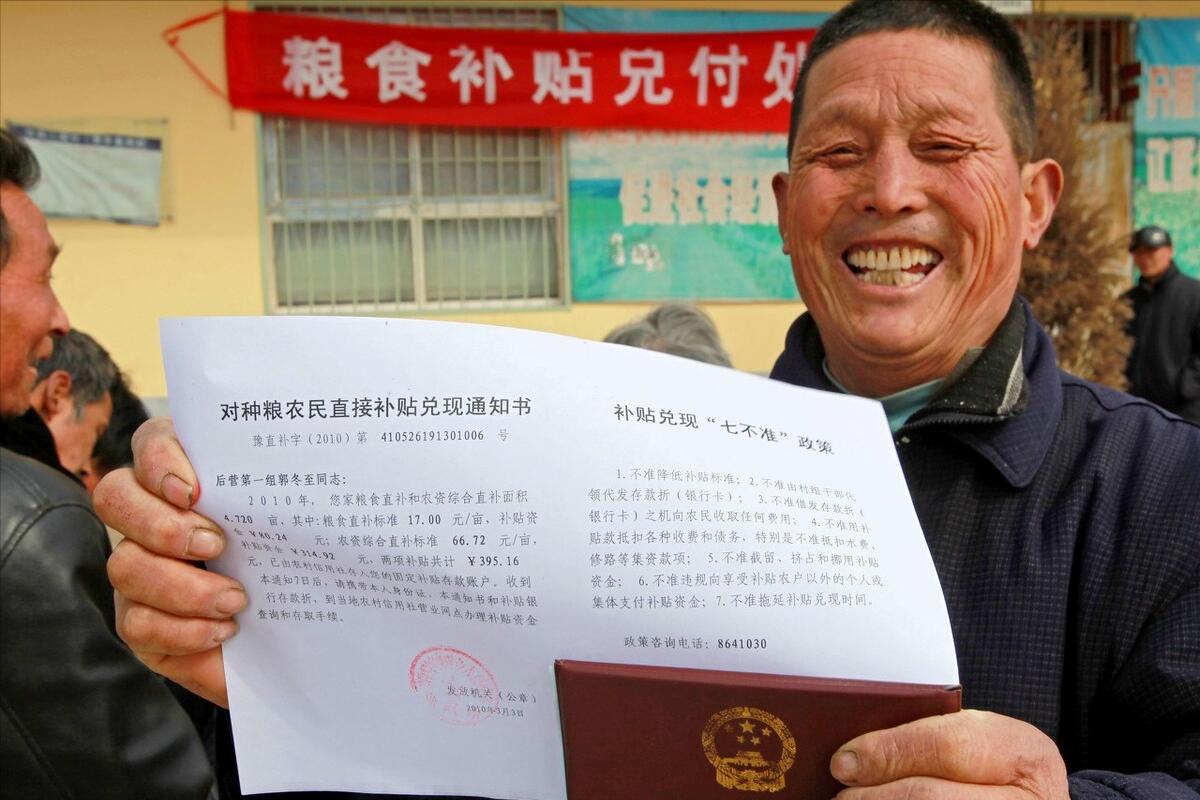 粮食补贴兑付处
对种粮农民直接补贴兑现通知书
豫直补字(2010)第 410526191301006 号
后营第一组郭冬至同志:
2010年,您家粮食直补和农资综合直补面积
4.720 亩,其中:粮食直补标准 17.00 元/亩,补贴资
金 ¥80.24 元;农资综合直补标准 66.72 元/亩,
补贴资金 ¥314.92 元,两项补贴共计 ¥395.16
元,已由农村信用社存入您的固定补贴存款账户。收到
本通知7日后,请携带本人身份证、本通知书和补贴银
行存款折,到当地农村信用社营业网点办理补贴资金
查询和存取手续。
发放机关(公章)
2010年3月3日
补贴兑现“七不准”政策
1.不准降低补贴标准;2.不准由村组干部代
领代发存款折(银行卡);3.不准借发存款折(
银行卡)之机向农民收取任何费用;4.不准用补
贴款抵扣各种收费和债务,特别是不准抵扣水费、
修路等集资款项;5.不准截留、挤占和挪用补贴
资金;6.不准违规向享受补贴农户以外的个人或
集体支付补贴资金;7.不准拖延补贴兑现时间。
政策咨询电话:8641030